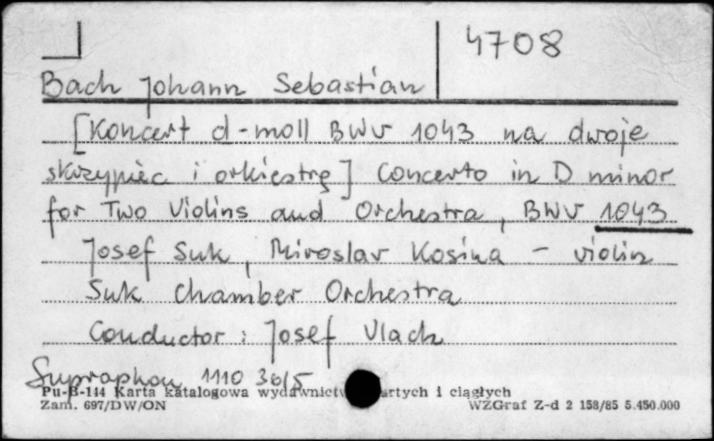 4708
Bach Johann Sebastian
[Koncert d-moll BWV 1043 na dwoje
skrzypiec i orkiestrę] Concerto in D minor
for Two Violins and Orchestra, BWV 1043
Josef Suk, Miroslav Kosina - violin
Suk Chamber Orchestra
Conductor: Josef Vlach
Supraphon 1110
Pu-B-144 Karta katalogowa i ciągłych
Zam. 697/DW/ON WZGraf Z-d 2 158/85 5.450.000